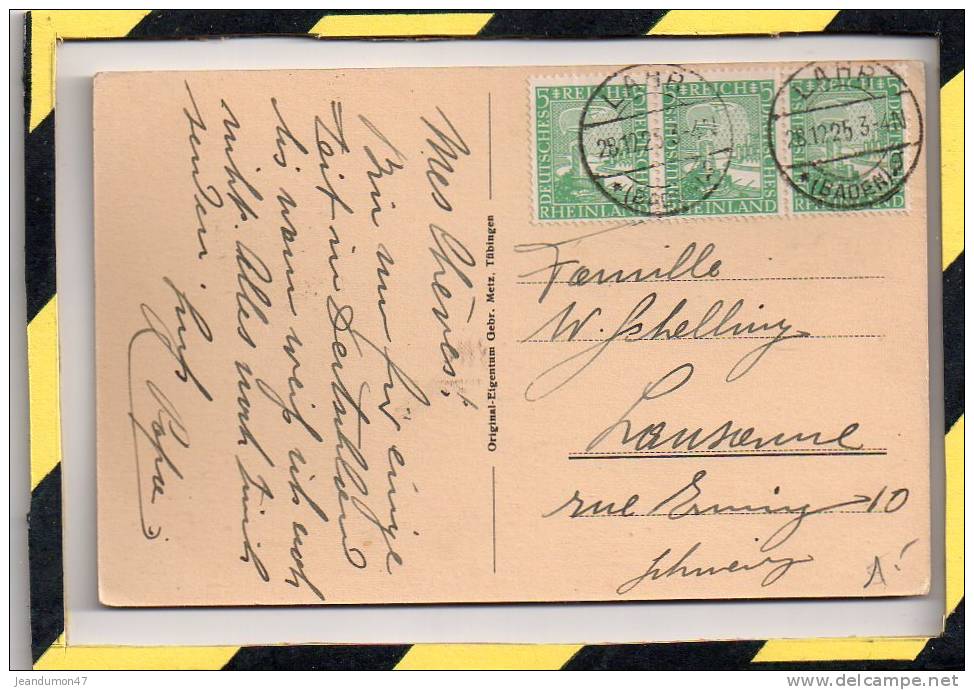 Mes Chères!
Bin nur für einige
Zeit in Deutschland
bis wann weiss ich noch
nicht. Alles
senden
Papa
Original-Eigentum Gebr. Metz, Tübingen
5 REICH 5
DEUTSCHES
RHEINLAND
5 REICH 5
DEUTSCHES
RHEINLAND
5 REICH 5
DEUTSCHES
RHEINLAND
LAHR
28.12.25 3-4N
LAHR
28.12.25 3-4N
* (BADEN) 2
Famille
W. Schelling
Lausanne
rue 10
Schweiz
jeandumon47
www.delcampe.net